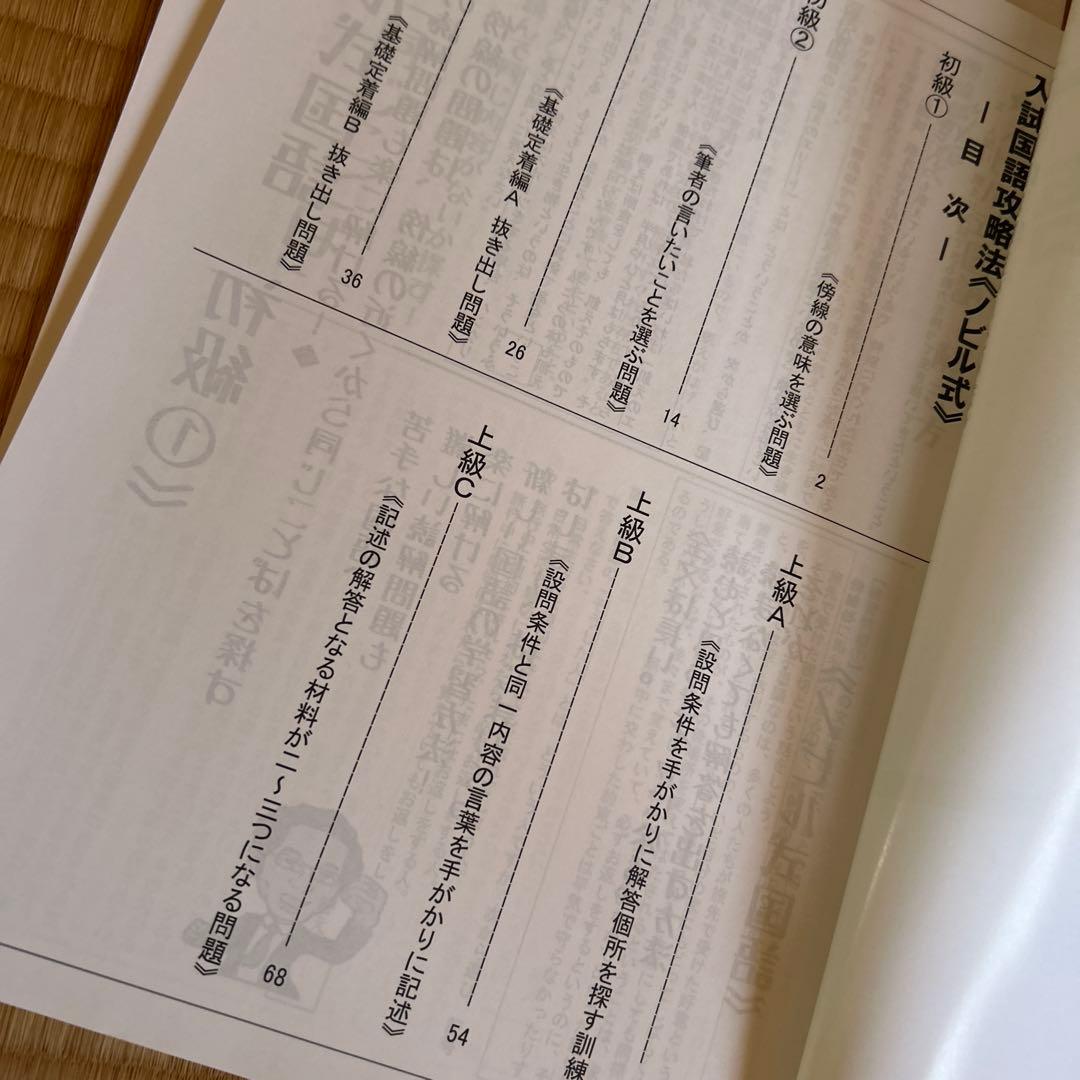 入試国語攻略法《ノビル式》
― 目 次 ―
初級①
《傍線の意味を選ぶ問題》
2
初級②
《筆者の言いたいことを選ぶ問題》
14
《基礎定着編A 抜き出し問題》
26
《基礎定着編B 抜き出し問題》
36
上級A
《設問条件を手がかりに解答個所を探す訓練
上級B
《設問条件と同一内容の言葉を手がかりに記述》
54
上級C
《記述の解答となる材料が二～三つになる問題》
68